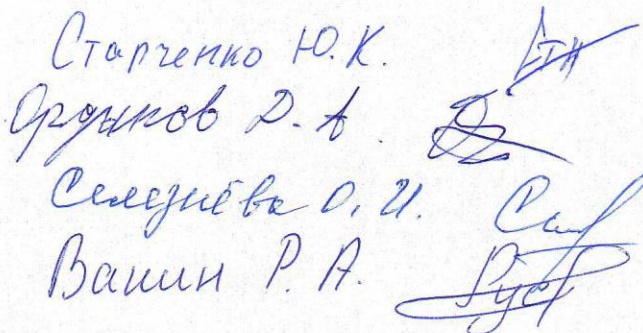 Старченко Ю.К.
Ордынов Д.А.
Селезнёва О.И.
Ванин Р.А.